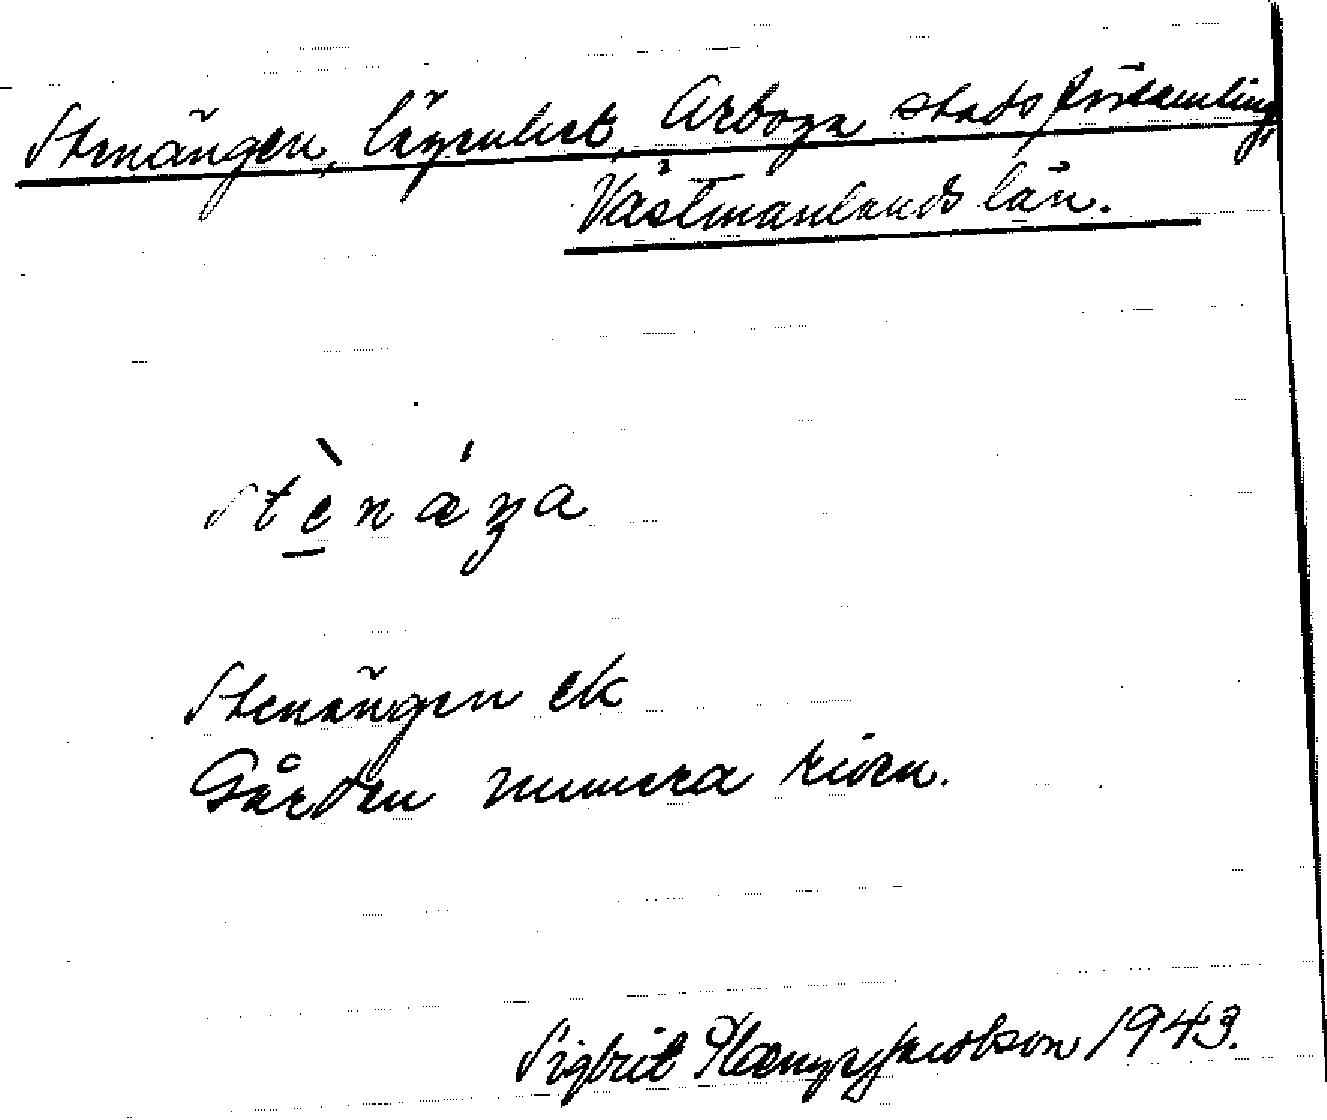 Stenängen, lägenhet, Arboga stadsförsamling,
Västmanlands län.
stènáŋa
Stenängen ek
Gården numera riven.
Sigbrit Plænge Jacobson 1943.